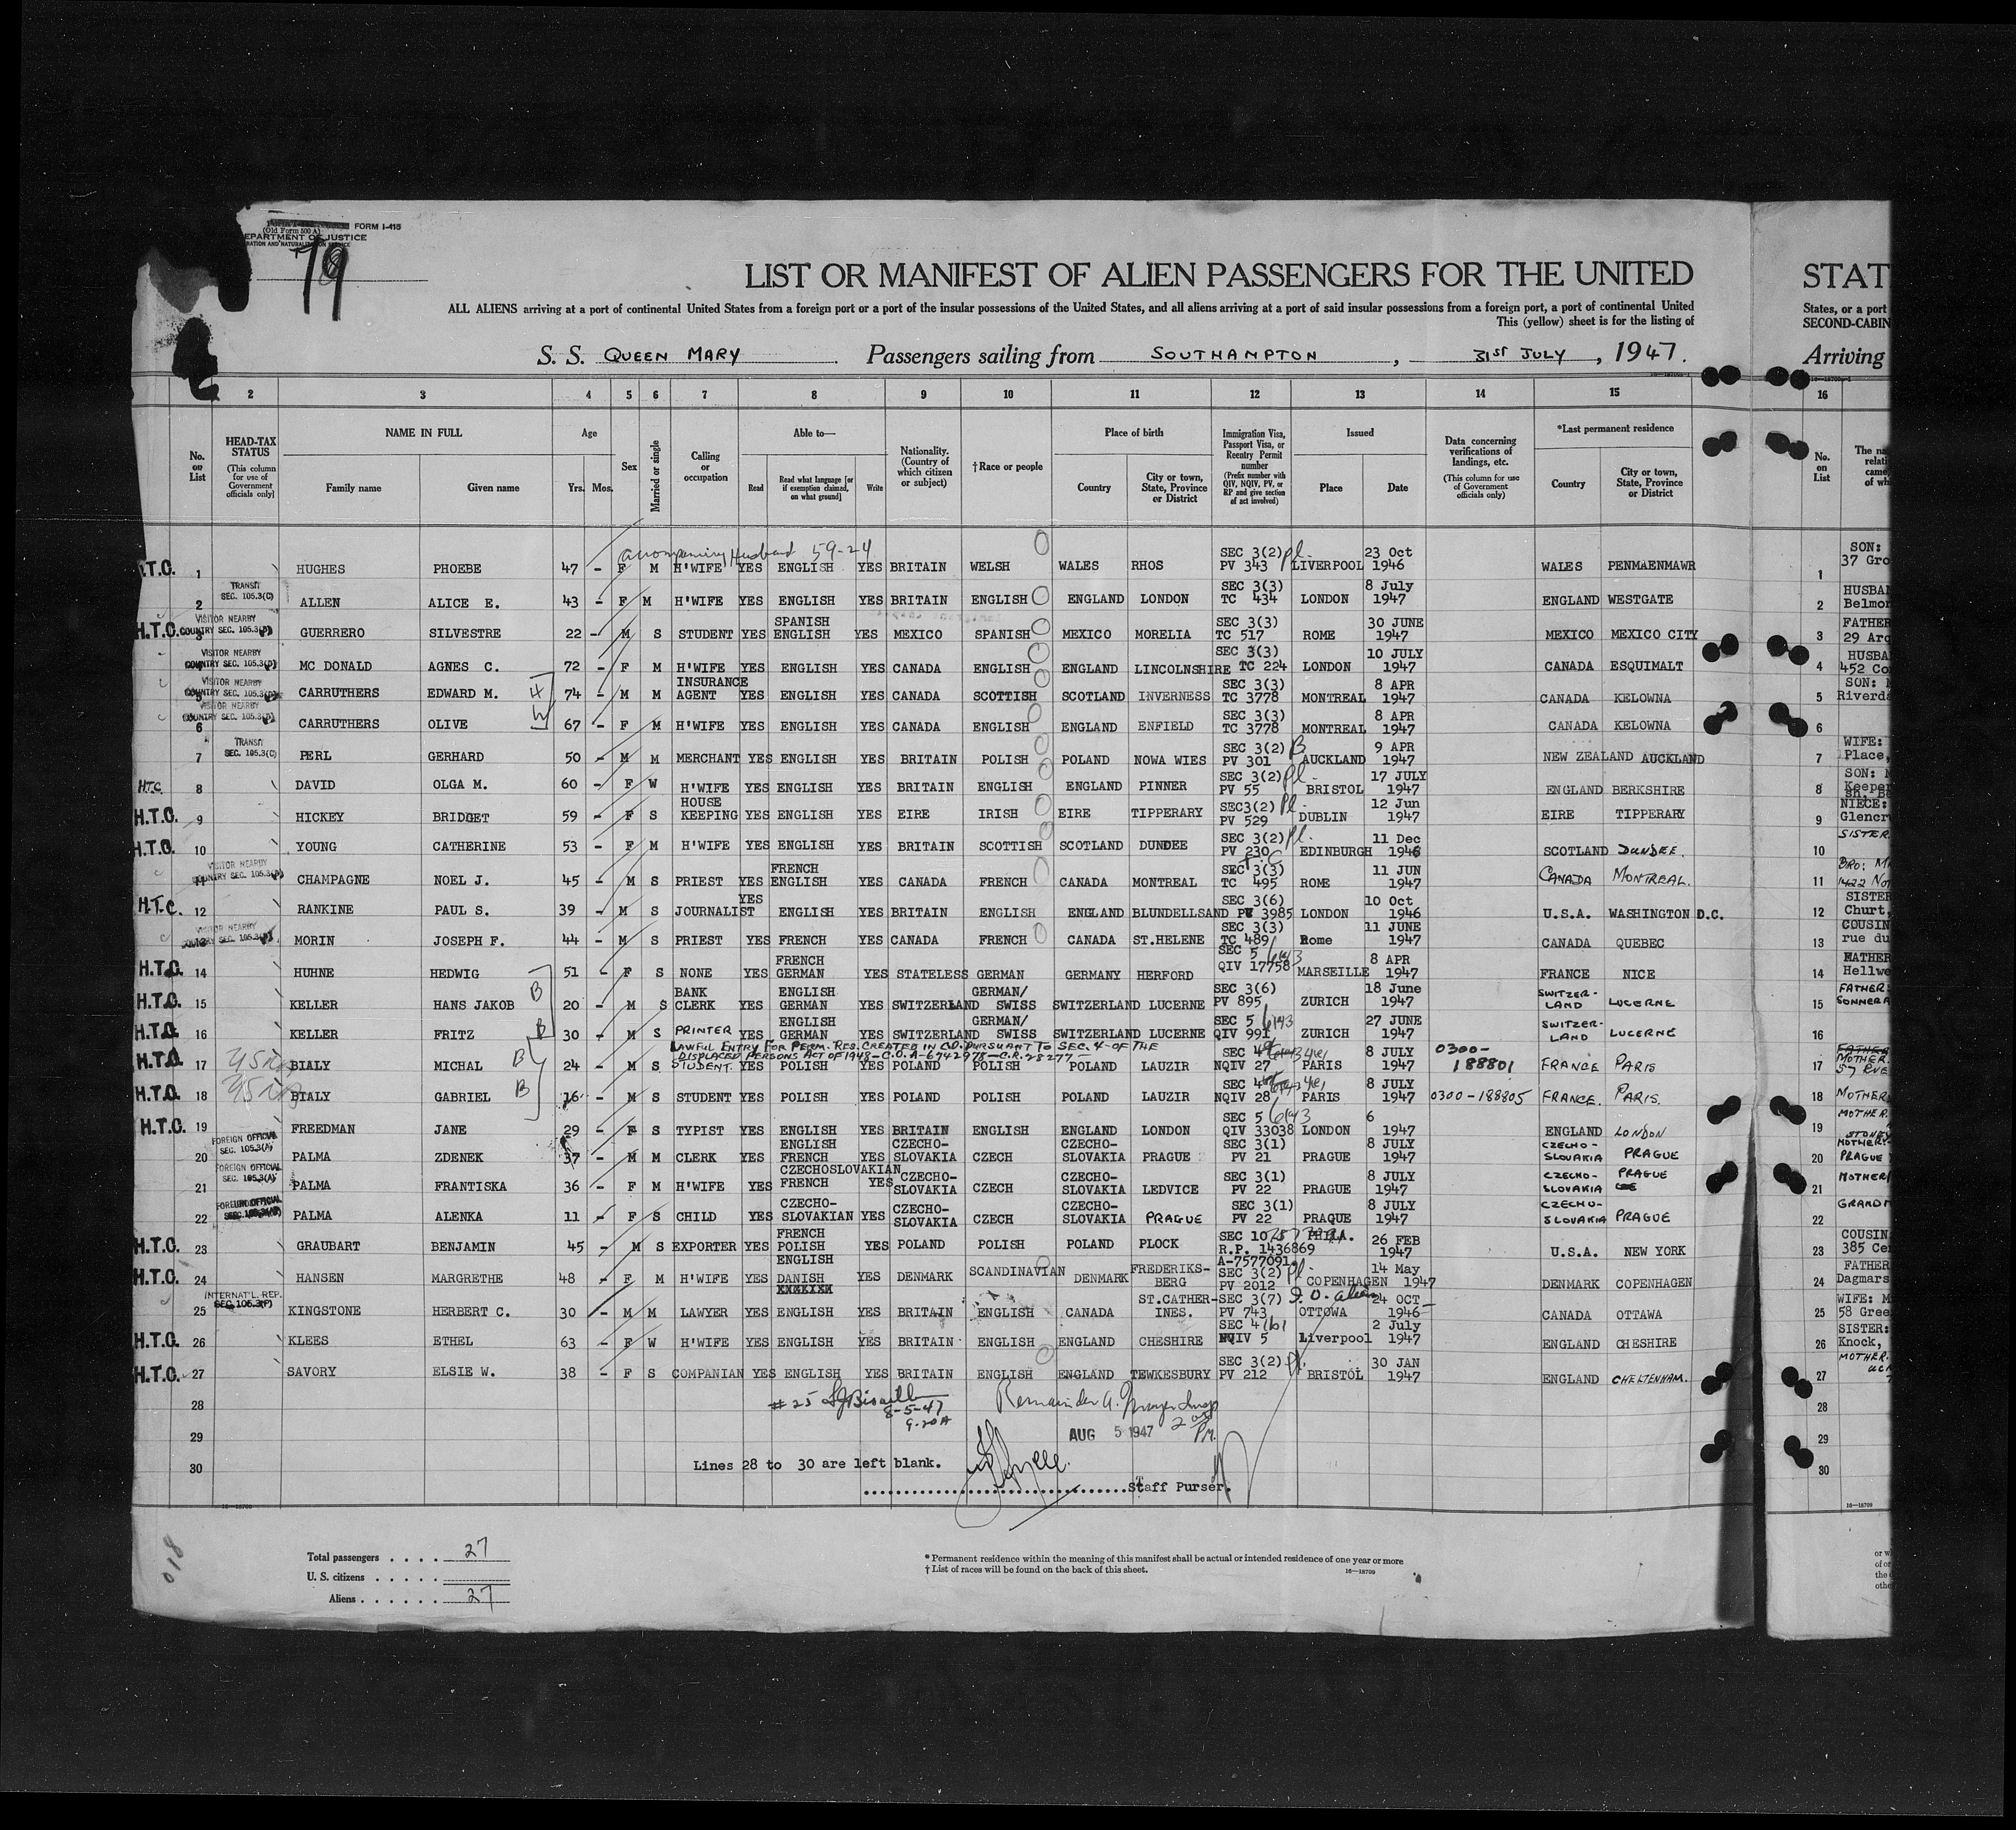 FORM I-415
(Old Form 500 A)
DEPARTMENT OF JUSTICE
79
LIST OR MANIFEST OF ALIEN PASSENGERS FOR THE UNITED STAT
ALL ALIENS arriving at a port of continental United States from a foreign port or a port of the insular possessions of the United States, and all aliens arriving at a port of said insular possessions from a foreign port, a port of continental United States, or a port
This (yellow) sheet is for the listing of SECOND-CABIN
S. S. QUEEN MARY Passengers sailing from SOUTHAMPTON, 31ST JULY, 1947. Arriving
2 3 4 5 6 7 8 9 10 11 12 13 14 15 16
No. on List
HEAD-TAX STATUS (This column for use of Government officials only)
NAME IN FULL Family name Given name
Age Yrs. Mos.
Sex
Married or single
Calling or occupation
Able to— Read Read what language [or if exemption claimed, on what ground] Write
Nationality. (Country of which citizen or subject)
†Race or people
Place of birth Country City or town, State, Province or District
Immigration Visa, Passport Visa, or Reentry Permit number (Prefix number with QIV, NQIV, PV, or RP and give section of act involved)
Issued Place Date
Data concerning verifications of landings, etc. (This column for use of Government officials only)
*Last permanent residence Country City or town, State, Province or District
No. on List
accompanying Husband 59-24
H.T.C. 1 HUGHES PHOEBE 47 - F M H'WIFE YES ENGLISH YES BRITAIN WELSH WALES RHOS SEC 3(2) PV 343 LIVERPOOL 23 Oct 1946 WALES PENMAENMAWR 1 SON: 37 Gro
TRANSIT SEC. 105.3(C) 2 ALLEN ALICE E. 43 - F M H'WIFE YES ENGLISH YES BRITAIN ENGLISH ENGLAND LONDON SEC 3(3) TC 434 LONDON 8 July 1947 ENGLAND WESTGATE 2 HUSBA Belmor
H.T.C. VISITOR NEARBY COUNTRY SEC. 105.3(B) 3 GUERRERO SILVESTRE 22 - M S STUDENT YES SPANISH ENGLISH YES MEXICO SPANISH MEXICO MORELIA SEC 3(3) TC 517 ROME 30 JUNE 1947 MEXICO MEXICO CITY 3 FATHER 29 Arq
VISITOR NEARBY COUNTRY SEC. 105.3(B) 4 MC DONALD AGNES C. 72 - F M H'WIFE YES ENGLISH YES CANADA ENGLISH ENGLAND LINCOLNSHIRE SEC 3(3) TC 224 LONDON 10 JULY 1947 CANADA ESQUIMALT 4 HUSBA 452 Co
VISITOR NEARBY COUNTRY SEC. 105.3(B) 5 CARRUTHERS EDWARD M. 74 - M M INSURANCE AGENT YES ENGLISH YES CANADA SCOTTISH SCOTLAND INVERNESS SEC 3(3) TC 3778 MONTREAL 8 APR 1947 CANADA KELOWNA 5 SON: Riverd
VISITOR NEARBY COUNTRY SEC. 105.3(B) 6 CARRUTHERS OLIVE 67 - F M H'WIFE YES ENGLISH YES CANADA ENGLISH ENGLAND ENFIELD SEC 3(3) TC 3778 MONTREAL 8 APR 1947 CANADA KELOWNA 6
TRANSIT SEC. 105.3(C) 7 PERL GERHARD 50 - M M MERCHANT YES ENGLISH YES BRITAIN POLISH POLAND NOWA WIES SEC 3(2) PV 301 AUCKLAND 9 APR 1947 NEW ZEALAND AUCKLAND 7 WIFE: Place,
H.T.C. 8 DAVID OLGA M. 60 - F W H'WIFE YES ENGLISH YES BRITAIN ENGLISH ENGLAND PINNER SEC 3(2) PV 55 BRISTOL 17 JULY 1947 ENGLAND BERKSHIRE 8 SON: Keeper
H.T.C. 9 HICKEY BRIDGET 59 - F S HOUSE KEEPING YES ENGLISH YES EIRE IRISH EIRE TIPPERARY SEC3(2) PV 529 DUBLIN 12 Jun 1947 EIRE TIPPERARY 9 NIECE: Glencr
H.T.C. 10 YOUNG CATHERINE 53 - F M H'WIFE YES ENGLISH YES BRITAIN SCOTTISH SCOTLAND DUNDEE SEC 3(2) PV 230 EDINBURGH 11 Dec 1946 SCOTLAND DUNDEE. 10 SISTER
VISITOR NEARBY COUNTRY SEC. 105.3(B) 11 CHAMPAGNE NOEL J. 45 - M S PRIEST YES FRENCH ENGLISH YES CANADA FRENCH CANADA MONTREAL SEC 3(3) TC 495 ROME 11 JUN 1947 CANADA MONTREAL. 11 BRO: M 1422 No
H.T.C. 12 RANKINE PAUL S. 39 - M S JOURNALIST YES ENGLISH YES BRITAIN ENGLISH ENGLAND BLUNDELLSAND SEC 3(6) PV 3985 LONDON 10 Oct 1946 U.S.A. WASHINGTON D.C. 12 SISTER Churt,
VISITOR NEARBY COUNTRY SEC. 105.3(B) 13 MORIN JOSEPH F. 44 - M S PRIEST YES FRENCH YES CANADA FRENCH CANADA ST.HELENE SEC 3(3) TC 489 Rome 11 JUNE 1947 CANADA QUEBEC 13 COUSIN rue du
H.T.C. 14 HUHNE HEDWIG 51 - F S NONE YES FRENCH GERMAN YES STATELESS GERMAN GERMANY HERFORD SEC 5 QIV 17758 MARSEILLE 8 APR 1947 FRANCE NICE 14 FATHER Hellwe
H.T.C. 15 KELLER HANS JAKOB 20 - M S BANK CLERK YES ENGLISH GERMAN YES SWITZERLAND GERMAN/ SWISS SWITZERLAND LUCERNE SEC 3(6) PV 895 ZURICH 18 June 1947 SWITZER-LAND LUCERNE 15 FATHER: SONNERA
H.T.C. 16 KELLER FRITZ 30 - M S PRINTER YES ENGLISH GERMAN YES SWITZERLAND GERMAN/ SWISS SWITZERLAND LUCERNE SEC 5 QIV 991 ZURICH 27 JUNE 1947 SWITZER-LAND LUCERNE 16
LAWFUL ENTRY FOR PERM. RES. CREATED IN C.O. PURSUANT TO SEC. 4 OF THE
DISPLACED PERSONS ACT OF 1948-C.O. A-6742978-C.R. 28277-
H.T.C. 17 BIALY MICHAL 24 - M S STUDENT. YES POLISH YES POLAND POLISH POLAND LAUZIR SEC 4 NQIV 27 PARIS 8 JULY 1947 0300-188801 FRANCE PARIS 17 MOTHER. 57 RUE
H.T.C. 18 BIALY GABRIEL 16 - M S STUDENT YES POLISH YES POLAND POLISH POLAND LAUZIR SEC 4 NQIV 28 PARIS 8 JULY 1947 0300-188805 FRANCE. PARIS. 18 MOTHER
H.T.C. 19 FREEDMAN JANE 29 - F S TYPIST YES ENGLISH YES BRITAIN ENGLISH ENGLAND LONDON SEC 5 QIV 33038 LONDON 6 1947 ENGLAND LONDON 19 MOTHER. STONEY
FOREIGN OFFICIAL SEC. 105.3(A) 20 PALMA ZDENEK 37 - M M CLERK YES ENGLISH FRENCH YES CZECHO-SLOVAKIA CZECH CZECHO-SLOVAKIA PRAGUE SEC 3(1) PV 21 PRAGUE 8 JULY 1947 CZECHO-SLOVAKIA PRAGUE 20 MOTHER: PRAGUE
FOREIGN OFFICIAL SEC. 105.3(A) 21 PALMA FRANTISKA 36 - F M H'WIFE YES CZECHOSLOVAKIAN FRENCH YES CZECHO-SLOVAKIA CZECH CZECHO-SLOVAKIA LEDVICE SEC 3(1) PV 22 PRAGUE 8 JULY 1947 CZECHO-SLOVAKIA PRAGUE 21 MOTHER
FOREIGN OFFICIAL SEC. 105.3(A) 22 PALMA ALENKA 11 - F S CHILD YES CZECHO-SLOVAKIAN YES CZECHO-SLOVAKIA CZECH CZECHO-SLOVAKIA PRAGUE SEC 3(1) PV 22 PRAGUE 8 JULY 1947 CZECHO-SLOVAKIA PRAGUE 22 GRANDM
H.T.C. 23 GRAUBART BENJAMIN 45 - M S EXPORTER YES FRENCH POLISH ENGLISH YES POLAND POLISH POLAND PLOCK SEC 10 R.P. 1436869 A-7577091 PHILA. 26 FEB 1947 U.S.A. NEW YORK 23 COUSIN 385 Cen
H.T.C. 24 HANSEN MARGRETHE 48 - F M H'WIFE YES DANISH YES DENMARK SCANDINAVIAN DENMARK FREDERIKS-BERG SEC 3(2) PV 2012 COPENHAGEN 14 May 1947 DENMARK COPENHAGEN 24 FATHER Dagmars
INTERNAT'L. REP. SEC. 105.3(F) 25 KINGSTONE HERBERT C. 30 - M M LAWYER YES ENGLISH YES BRITAIN ENGLISH CANADA ST.CATHER-INES. SEC 3(7) PV 743 OTTOWA 24 OCT 1946 CANADA OTTAWA 25 WIFE: M 58 Gree
H.T.C. 26 KLEES ETHEL 63 - F W H'WIFE YES ENGLISH YES BRITAIN ENGLISH ENGLAND CHESHIRE SEC 4(b) NQIV 5 Liverpool 2 July 1947 ENGLAND CHESHIRE 26 SISTER: Knock,
H.T.C. 27 SAVORY ELSIE W. 38 - F S COMPANIAN YES ENGLISH YES BRITAIN ENGLISH ENGLAND TEWKESBURY SEC 3(2) PV 212 BRISTOL 30 JAN 1947 ENGLAND CHELTENHAM. 27 MOTHER.
28 #25 8-5-47 Remainder 28
9-20A
29 AUG 5 1947 2 PM. 29
30 Lines 28 to 30 are left blank. 30
Staff Purser.
16-18709
018
Total passengers . . . . 27
U. S. citizens . . . . .
Aliens . . . . . . 27
* Permanent residence within the meaning of this manifest shall be actual or intended residence of one year or more
† List of races will be found on the back of this sheet.
16—18709